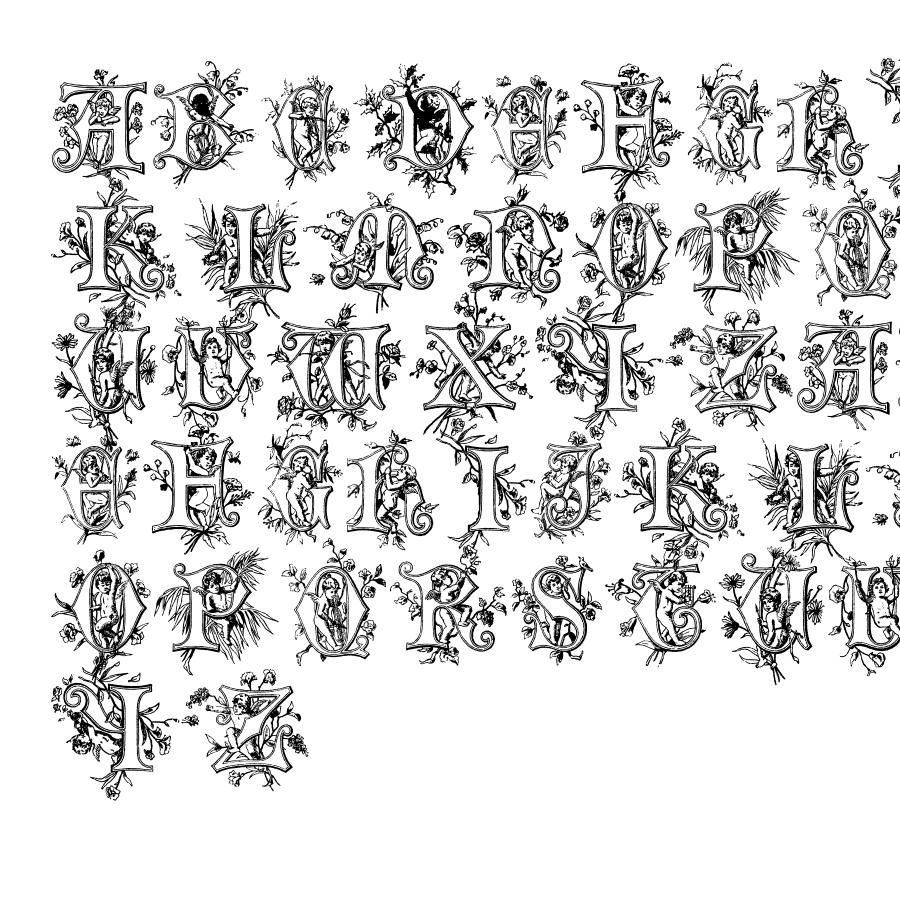 A B C D E F G H
K L M N O P Q
U V W X Y Z A
E F G H I J K L
O P Q R S T U V
Y Z